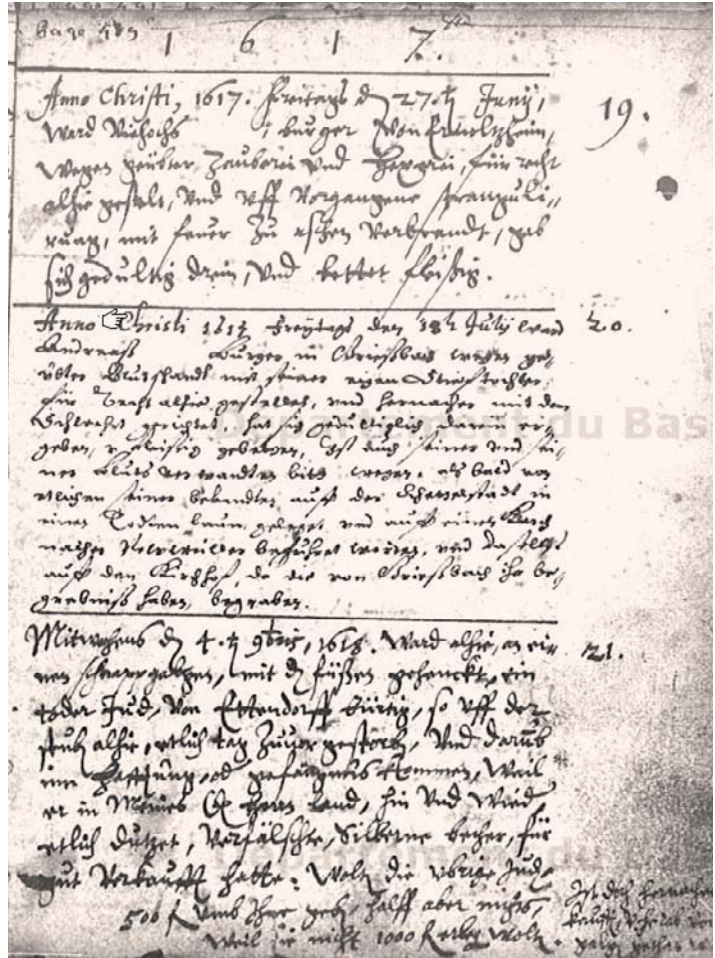 page 489
1 6 1 7.
Anno Christi, 1617. Freitags dn 27.tn Junij,
Ward burger Von
wegen geübter Zauberei Vnd Hexerei, für recht
alhie gestelt, Vnd Vff Vorgangene strangulie,,
rung, mit feuer zu eschen Verbrandt, gab
sich gedultig drein, Vnd bettet fleißig.
19.
Anno Christi Freytags den July ward
Andreas Burger in Griessbach wegen ge,,
übter Blutschandt mit seiner eigen Stieftochter,
für Recht alhie gestellet, vnd hernacher mit dem
Schwehrt gerichtet, hat sich gedultiglich darein er
geben, v fleissig gebetten, Ist auch seiner vnd sei,,
ner Bluts verwandten bitt wegen, als bald von
etlichen seiner bekandten auff der in
einen Todten baum geleget, vnd auff einem
nacher gefuhret worden, vnd daselbst
auff den Kirchhof, da die von Griessbach ihr be,,
grebniss haben, begraben.
20.
Mitwochens dn 4.tn 9bris, 1618. Ward alhie, an ei,,
nen schnapgalgen, mit dn füssen gehenckt, ein
toder Jud, Von Ettendorff bürtig, so Vff der
stub alhie, etlich tag zuuor gestorbn, Vnd darumb
inn hafftung, od gefängnis kommen, Weil
er in Meines Gn herrn Land, hin Vnd Wied
etlich dutzet, Verfälschte, Silberne becher, für
gut Verkaufft hatte. Woltn die vbrige Judn
500 fl vmb Ihne gebn, halff aber nichts,
Weil sie nicht 1000 fl erlegn woltn.
21.
Ist doch hernacher
Departement du Bas
Departement du Bas